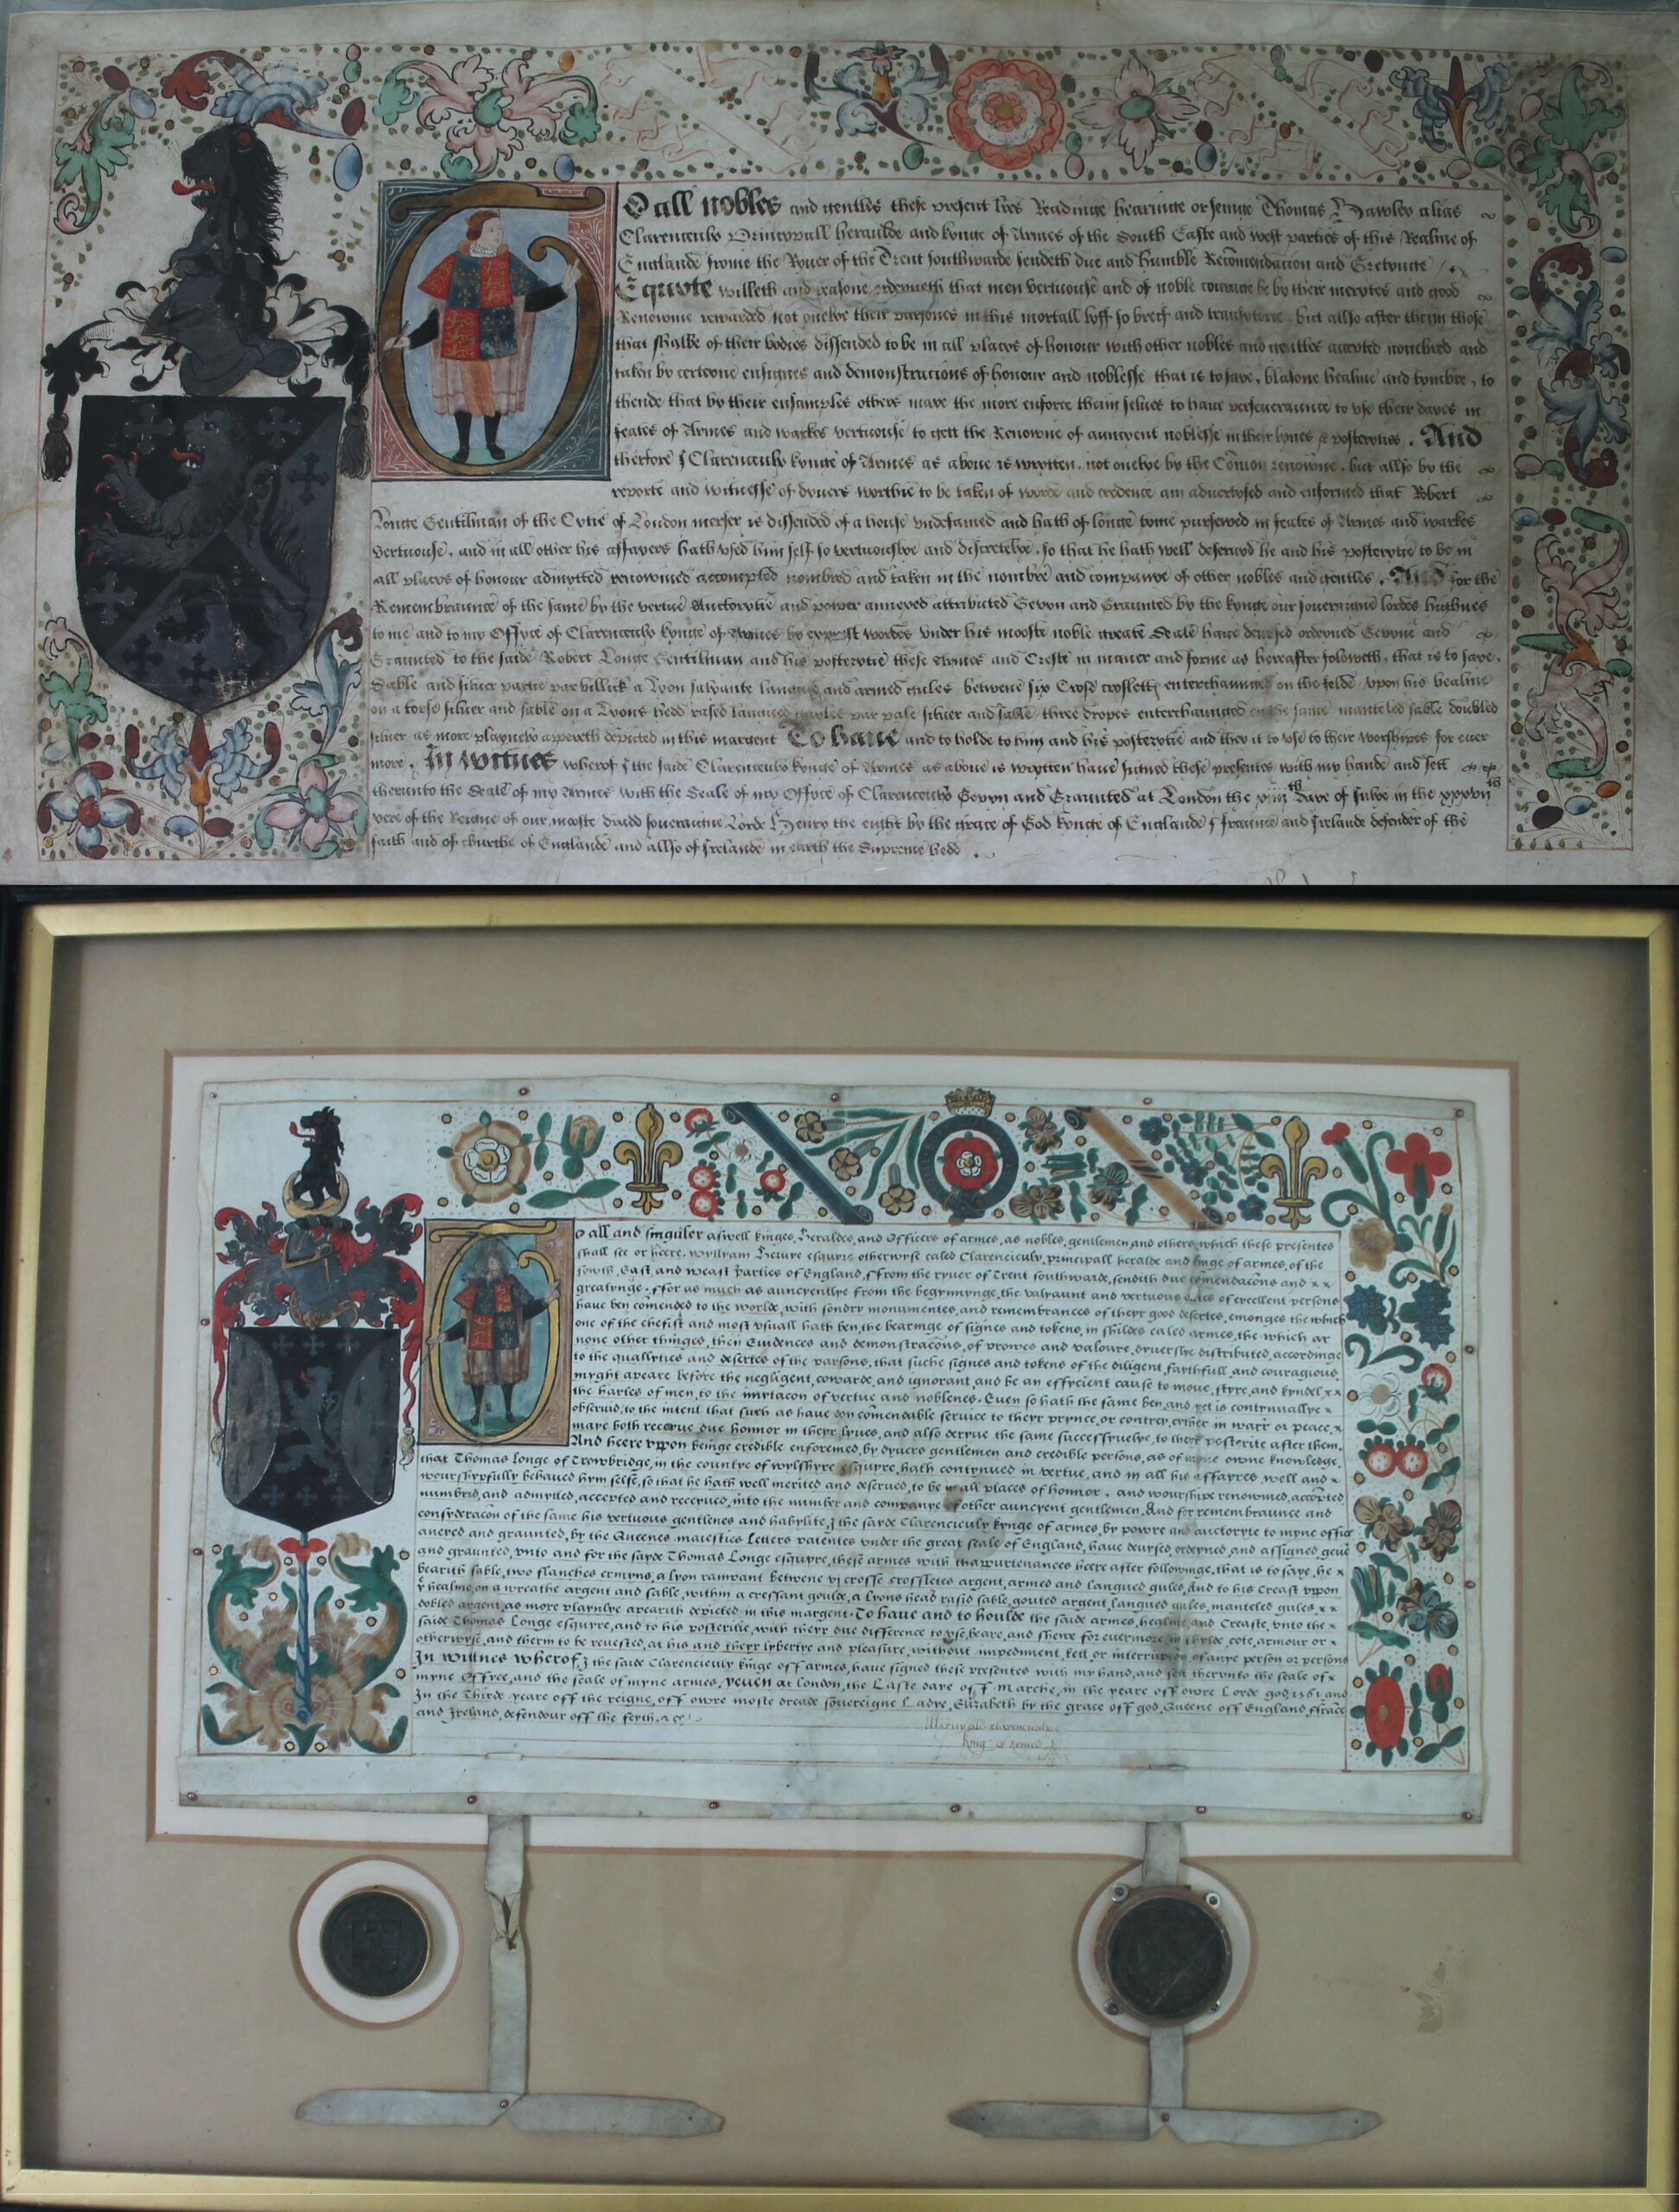 To all nobles and gentles these present lres Readinge hearinge or seinge Thomas Hawley alias
Clarencieulx Principall heraulde and kynge of Armes of the South Easte and west parties of this Realme of
Englande frome the Ryver of the Trent southwarde sendeth due and humble Recomendacion and Gretynge
Equyte willeth and reasone ordeyneth that men vertuouse and of noble courage be by their merytes and good
Renowme rewarded not onelye their parsones in this mortall lyff so breif and transytorie but allso after theim those
that shalbe of their bodies dissended to be in all places of honour with other nobles and gentles accepted nombred and
taken by certeyne ensignes and demonstracions of honour and noblesse that is to saye, blasone healme and tymbre, to
thende that by their ensamples others maye the more enforce theim selves to have perseueraunce to vse their dayes in
feates of Armes and warkes vertuouse to gett the Renowne of auncyent noblesse in their lynes & posteryties. And
therfore I Clarencieulx kynge of Armes as above is wrytten, not onelye by the Comon renowne, but allso by the
reporte and witnesse of dyvers worthie to be taken of worde and credence am advertysed and enformed that Robert
Longe Gentilman of the Cytie of London mercer is dissended of a house vndefamed and hath of longe tyme pursewed in feates of Armes and warkes
Vertuouse, and in all other his affayers hath vsed him self so vertuouslye and discretelye, so that he hath well deserved he and his posterytie to be in
all places of honour admytted renowmed accompted nombred and taken in the nombre and companye of other nobles and gentles. And for the
Remembraunce of the same by the vertue Auctorytie and power annexed attributed Gevyn and Graunted by the kynge our soueraigne lordes highnes
to me and to my Offyce of Clarencieulx kynge of Armes by exprest wordes vnder his mooste noble greate Seale have devysed ordeyned Gevyne and
Graunted to the saide Robert Longe Gentilman and his posterytie these Armes and Creste in maner and forme as hereafter foloweth, that is to saye,
Sable and silver partie par a Lyon salyante langued and armed gules betwene six Crose croslettes enterchaunged on the felde vpon his healme
on a torse silver and sable on a Lyons hedd rased langued gowles par pale silver and sable three dropes enterchaunged on the same manteled sable doubled
silver as more playnely appereth depicted in this margent To have and to holde to him and his posterytie and they it to vse to their worshipes for ever
more. In wytnes wherof I the saide Clarencieulx kynge of Armes as above is wrytten have signed these presentes with my hande and sett
therunto the Seale of my Armes with the Seale of my Offyce of Clarencieulx Gevyn and Graunted at London the daye of Julye in the xxxvii th
yere of the Reigne of our mooste dradd soueraigne Lorde Henry the eight by the grace of God kynge of Englande fraunce and Irelande defender of the
faith and of churche of Englande and allso of Irelande in earth the Supreme hedd.
To all and singuler aswell kinges, Heraldes, and Officers of armes, as nobles, gentlemen and others, which these presentes
shall see or heere, wyllyam Hervye esquyre otherwyse caled Clarencieulx, principall heralde and kinge of armes, of the
sowth, East, and weast parties of England, ffrom the ryver of Trent southwarde, sendith due comendacons and x x
greatynge: ffor as much as auncyentlye from the begynnynge, the valyaunt and vertuous actes of excellent persons
have ben comended to the worlde, with sondry monumentes, and remembrances of theyr good desertes, emonges the which
one of the chefist and most vsuall hath ben, the bearinge of signes and tokens, in shildes caled armes, the which ar
none other thinges, then Euidences and demonstracons, of prowes and valoure, dyuerslye distributed, accordinge
to the quallyties and desertes of the parsons, that suche signes and tokens of the diligent, faythfull, and couragious
myght apeare before the negligent, cowarde, and ignorant, and be an effycient cause to move, styre, and kyndel x x
the hartes of men, to the imytacon of vertue and noblenes. Even so hath the same ben, and yet is contynuallye x
observid, to the intent that such as have don comendable service to theyr prynce, or contrey, eyther in warr or peace, x
maye both receyve due honnor in theyr lyves, and also deryve the same successyvelye, to theyr posterite after them.
And heere vppon beinge credible enformed, by dyuers gentlemen and credible persons, as of myne owne knowledge,
that Thomas longe of Trowbridge, in the countye of wylshyre esquyre, hath contynued in vertue, and in all his affayres, well and x
wourshypfully behaved hym selfe, so that he hath well merited and deserved, to be in all places of honnor, and wourshipe renowmed, accopted
numbrid, and admytted, accepted and receyued, into the number and companye of other auncyent gentlemen. And for remembraunce and
consyderacon of the same his vertuous gentlenes and habylite, I the sayde Clarencieulx kynge of armes, by powre and auctoryte to myne office
anexed and graunted, by the Queenes maiesties Letters patentes vnder the great seale of England, have deuysed, ordeyned, and assigned, geve
and graunted, vnto and for the sayde Thomas Longe esquyre, these armes with thappurtenances heere after followinge, that is to saye, he x
bearith sable, two flanches ermyns, a lyon rampant betwene vj crosse crosseletes argent, armed and langued gules, And to his Creast vppon
y healme, on a wreathe argent and sable, within a cressant goulde, a lyons head rasid sable, gouted argent, langued gules, manteled gules, x x
dobled argent, as more playnlye apearith depicted in this margent. To have and to houlde the saide armes, healme, and Creaste, vnto the x
saide Thomas Longe esquyre, and to his posteritie, with theyr due difference to vse, beare, and shewe for evermore, in shylde, cote, armour or x
otherwyse, and therin to be revested, at his and theyr lybertye and pleasure, without impediment, lett or interrupcon of anye person or persons
In wittnes wherof, I the saide Clarencieulx kinge off armes, have signed these presentes with my hand, and sett therunto the seale of x
myne Offyce, and the seale of myne armes, yeven at london, the Laste daye off Marche, in the yeare off owre Lorde god, 1561, and
In the Thirde yeare off the reigne, off owre moste dreade souereigne Ladye, Elizabeth by the grace off god, Queene off England, ffrace
and Ireland, defendour off the feyth. &c.
clarencieulx
King of Armes